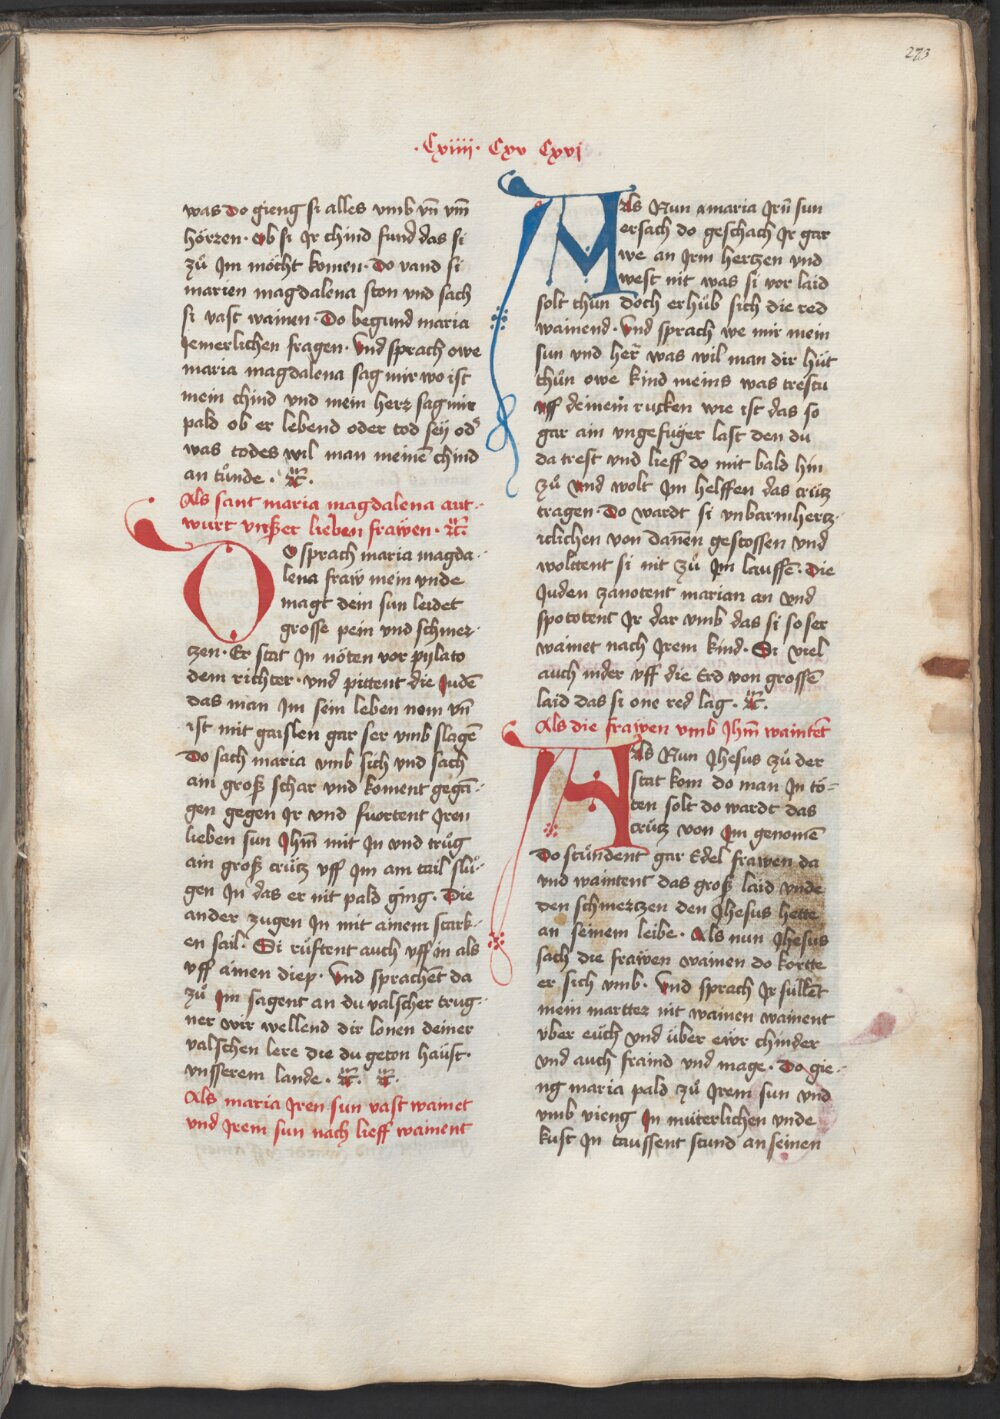 273
·Cxiiii· Cxv Cxvj
was Do gieng si alles vmb vn̄ vm̄
hörzen· ob si Jr chind fund das si
zů Jm möcht komen· Do vand si
marien magdalena ston vnd sach
si vast wainen· Do begund maria
Jemerlichen fragen· Vnd sprach owe
maria magdalena sag mir wo ist
mein chind vnd mein herz sag mir
pald ob er lebend oder tod seÿ od
was todes wil man meinē chind
an tůnde ·
Als sant maria magdalena ant-
wurt vnßer lieben frawen·
DO sprach maria magda-
lena fraw mein vnde
magt dein sun leidet
grosse pein vnd schmer-
tzen· Er stat Jn nöten vor pylato
dem richter· vnd pittent die Judē
das man Jm sein leben nem vn̄
ist mit gaislen gar ser vmb slagē
Do sach maria vmb sich vnd sach
ain groß schar vnd koment gegā-
gen gegen Jr vnd fuortent Jren
lieben sun Jhm̄ mit Jn vnd trůg
ain groß crütz vff Jm am tail slů-
gen Jn das er nit pald ging· Die
ander zugen Jn mit ainem stark-
en sail· Si rüftent auch vff in als
vff ainen diep· Vnd sprachēt da
zů Jm sagent an du valscher trug-
ner wir wellend dir lonen deiner
valschen lere die du geton haüst·
vnsserem lande ·
Als maria Jren sun vast wainet
vnd Jrem sun nach lieff wainent
Als Nun maria Jrn̄ sun
ersach do geschach Jr gar
we an Jrm hertzen vnd
west nit was si vor laid
solt thun doch erhüb sich die red
wainend· Vnd sprach we mir mein
sun vnd her̄ was wil man dir hüt
thůn owe kind meins was trestu
vff deinem rucken wie ist das so
gar ain vngefüger last den du
da trest vnd lieff do mit bald hin
zů Vnd wolt Jm helffen das crütz
tragen· Do wardt si vnbarmhertz-
icklichen von danēn gestossen vnd
wolttent si nit zů Jm lauffē· Die
Juden zanotent marian an vnd
spototent Jr dar vmb das si so ser
wainet nach Jrem kind· Si viel
auch nider vff die Erd von grossē
laid das si one red lag·
Als die frawen vmb Jhm̄ waintēt
Als Nun Jhesus zů der
stat kom do man Jn tö-
ten solt do wardt das
crütz von Jm genomē
Do stůndent gar Edel frawen da
vnd waintent das groß laid vnde
den schmertzen den Jhesus hette
an seinem leibe· Als nun Jhesus
sach die frawen wainen do kortte
er sich vmb· Vnd sprach Jr süllēt
mein martter nit wainen wainent
vber eüch vnd über ewr chinder
vnd auch fraind vnd mage· Do gie-
ng maria pald zů Jrem sun vnd
vmb vieng Jn müterlichen vnde
kust Jn taussent stund an seinen